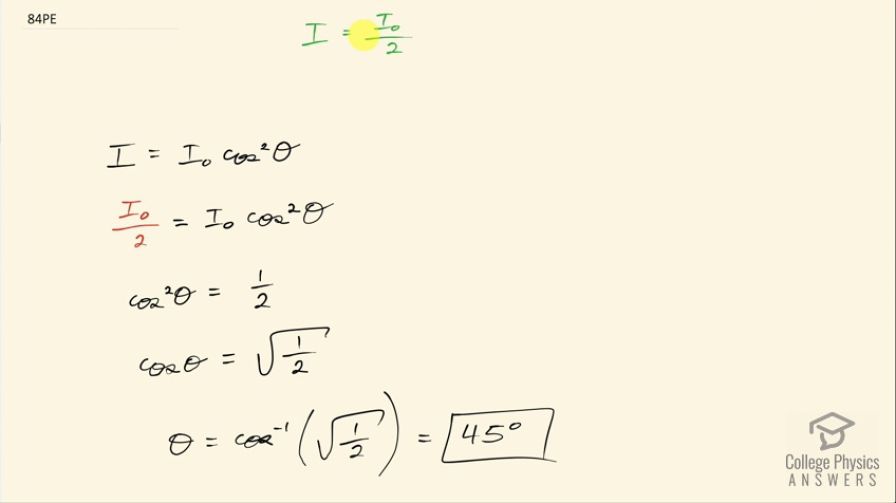 84PE
I = I₀/2
I = I₀ cos²θ
I₀/2 = I₀ cos²θ
cos²θ = 1/2
cosθ = √(1/2)
θ = cos⁻¹(√(1/2)) = 45°
College Physics
ANSWERS